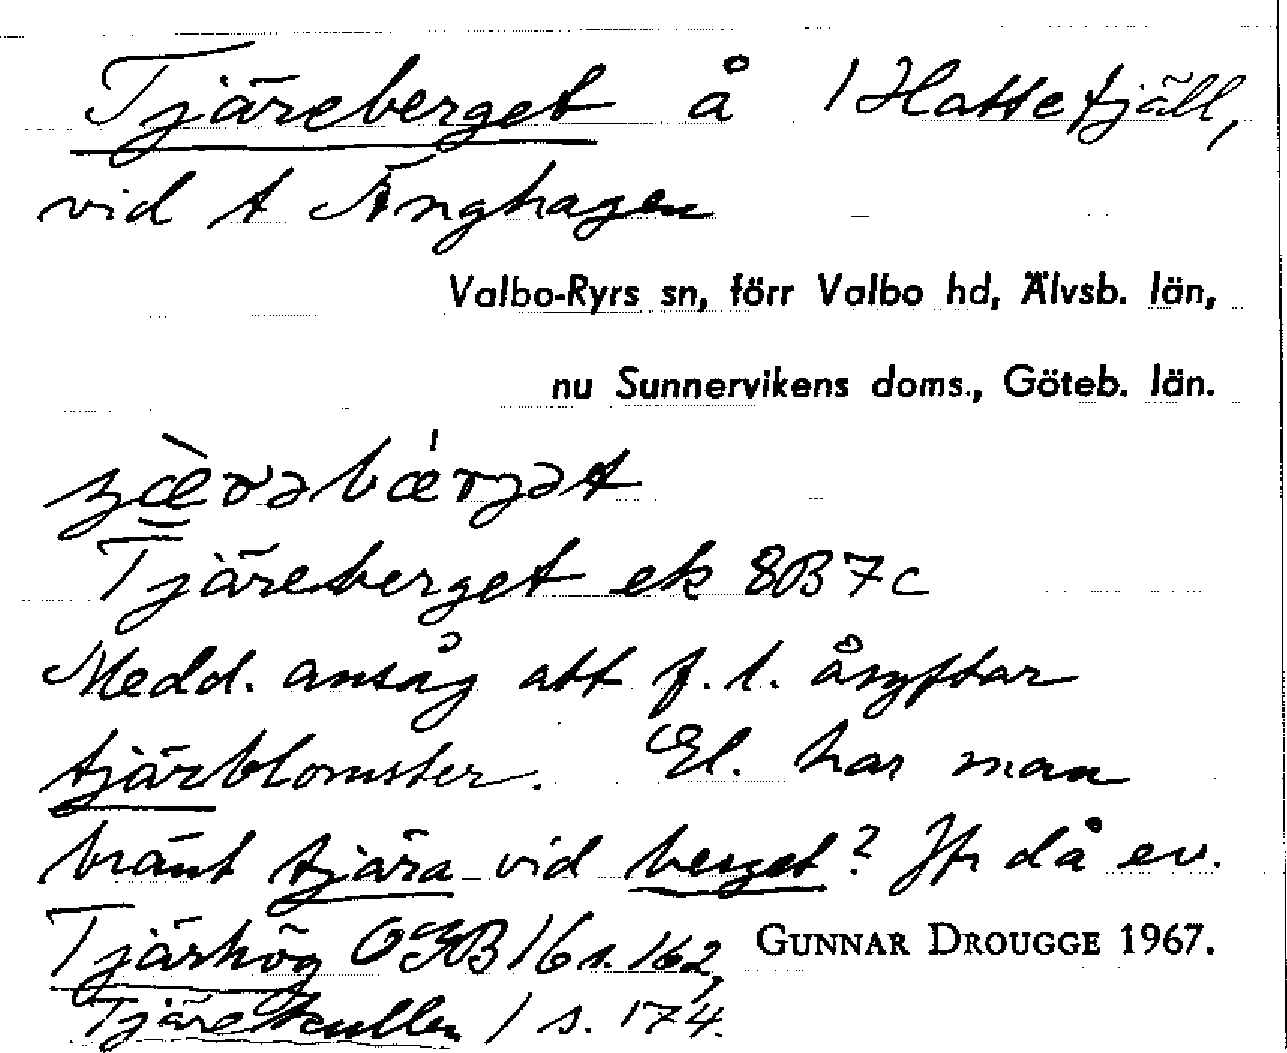 Tjäreberget å 1 Hattefjäll,
vid t Änghagen
Valbo-Ryrs sn, förr Valbo hd, Älvsb. län,
nu Sunnervikens doms., Göteb. län.
Tjäreberget ek 8B7c
Medd. ansåg att f. l. åsyftar
tjärblomster. El. har man
bränt tjära vid berget? Jfr då ev.
Tjärhög OGB 16 s. 162,
GUNNAR DROUGGE 1967.
Tjärekullen 1 s. 174.